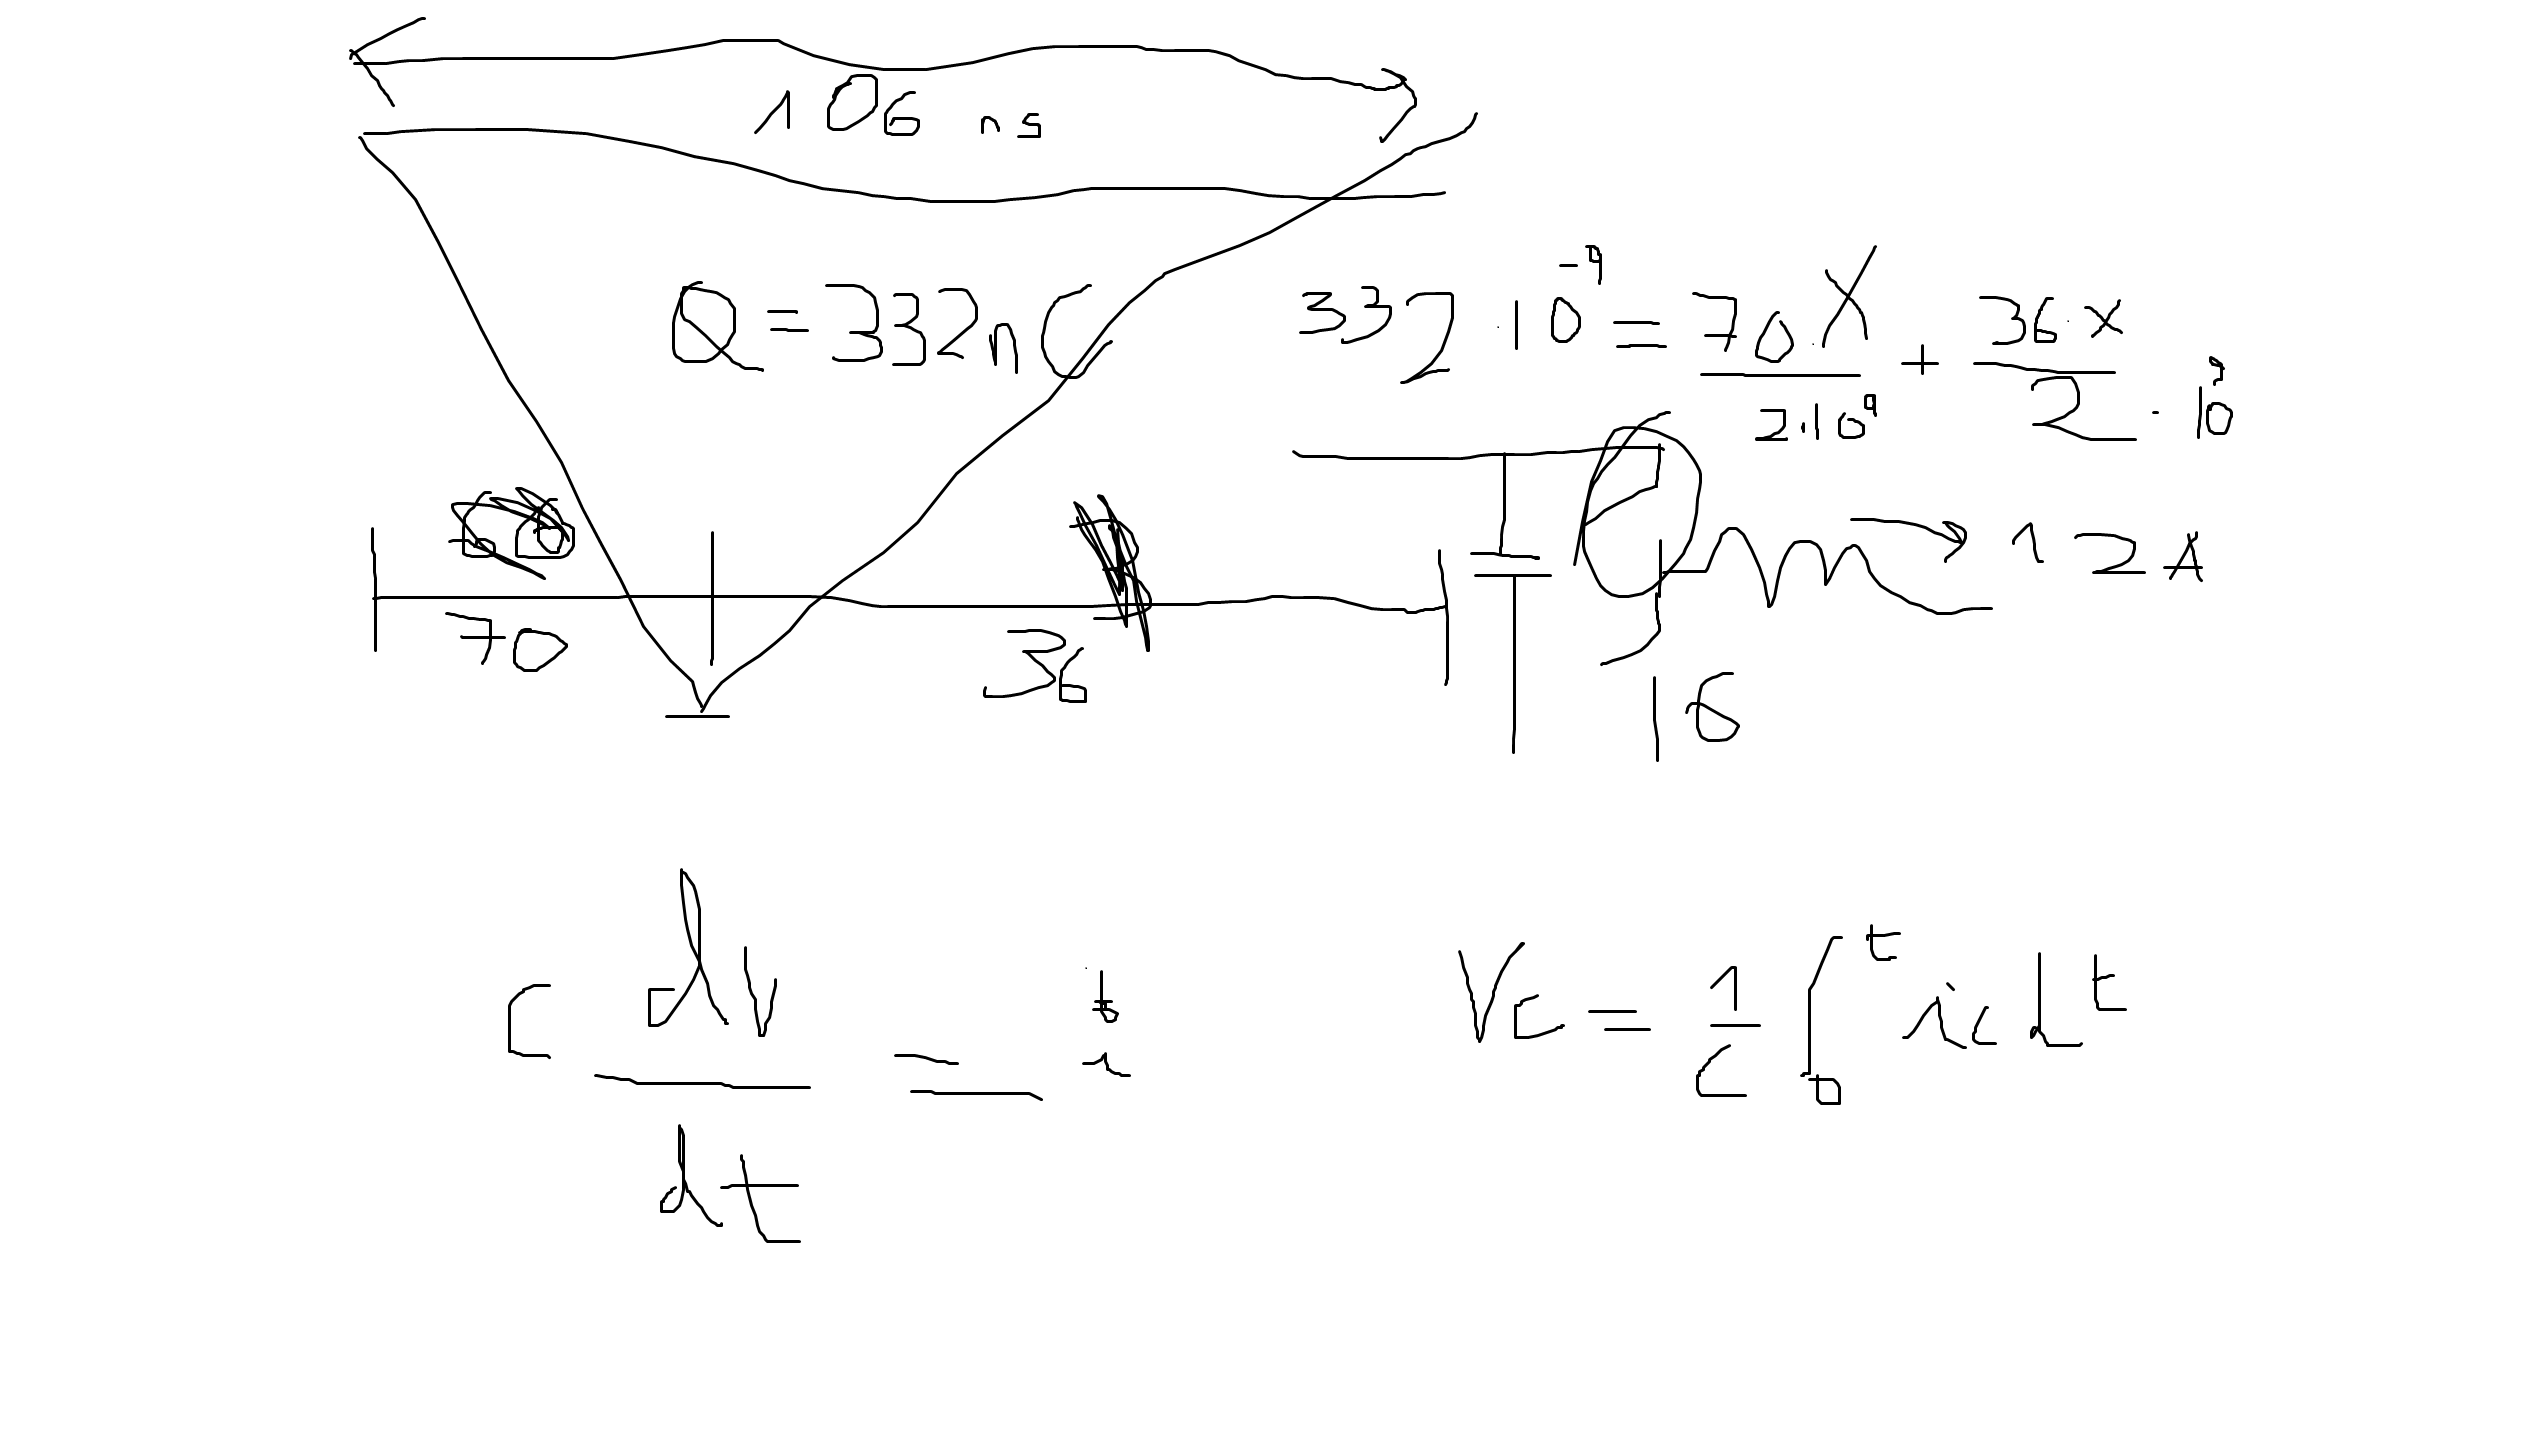 106 ns
Q = 332nC
332 · 10⁻⁹ = 70·X / 2·10⁹ + 36·x / 2 · 10⁹
70
36
12A
16
C dv/dt = i
Vc = 1/C ∫₀ᵗ ic dt